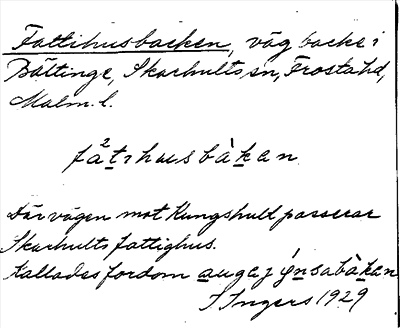 Fattihusbacken, väg backe i
Bältinge, Skarhults sn, Frosta hd,
Malm. l.
fa²tihusbàkan
Där vägen mot Kungshult passerar
Skarhults fattighus.
Kallades fordom
S Ingers 1929